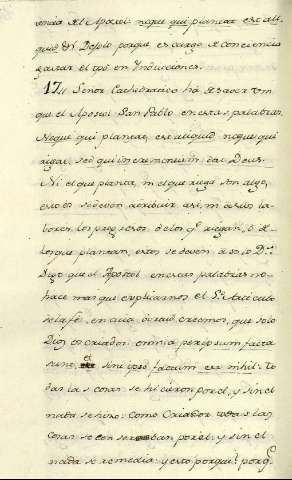 encia del Apostol neque qui plantat est ali
quid &c. Dejolo porque es cargo de conciencia
gastar el tpõ en Inducciones.
17,, Señor Cathedratico ha de saver Vm
que el Apostol San Pablo en estas palabras
Neque qui plantat, est aliquid neque qui
rigat, sed qui incrementum dat Deus.
Ni el que planta, ni el que riega son algo,
esto es se deven atribuir assi, ni a sus la
bores los progresos de los q.e riegan, ô de
los que plantan, estos se deven á solo D.s
Digo que el Apostol en estas palabras no
hace mas que explicarnos el Articulo
de la fé, en que creemos, que solo
Dios es Criador: omnia per ipsum facta
sunt, et sine ipso factum est nihil: to
das las cosas se hicieron por el, y sin el
nada se hizo: Como Criador todas las
cosas se por el: y sin el
nada se remedia: y esto porque? porq.e